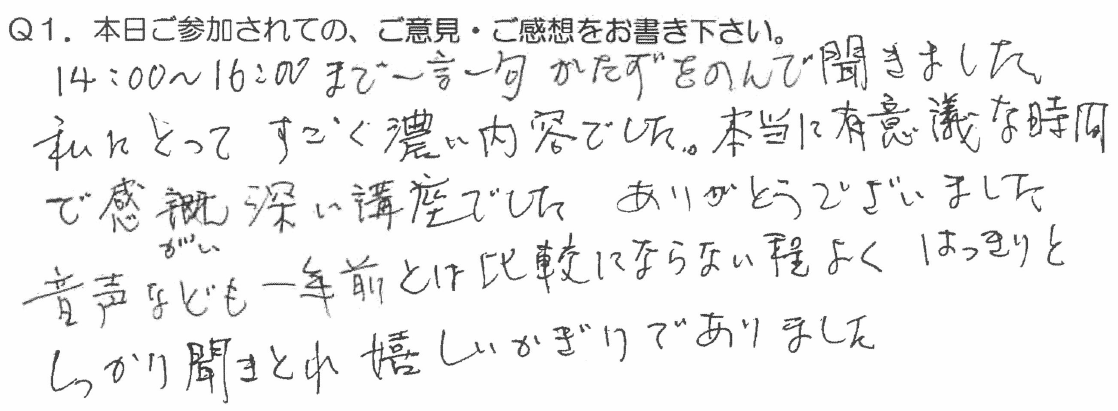 Q1. 本日ご参加されての、ご意見・ご感想をお書き下さい。
14:00〜16:00まで一言一句かたずをのんで聞きました。
私にとってすごく濃い内容でした。本当に有意義な時間
で感慨深い講座でした ありがとうございました
がい
音声なども一年前とは比較にならない程よくはっきりと
しっかり聞きとれ嬉しいかぎりでありました